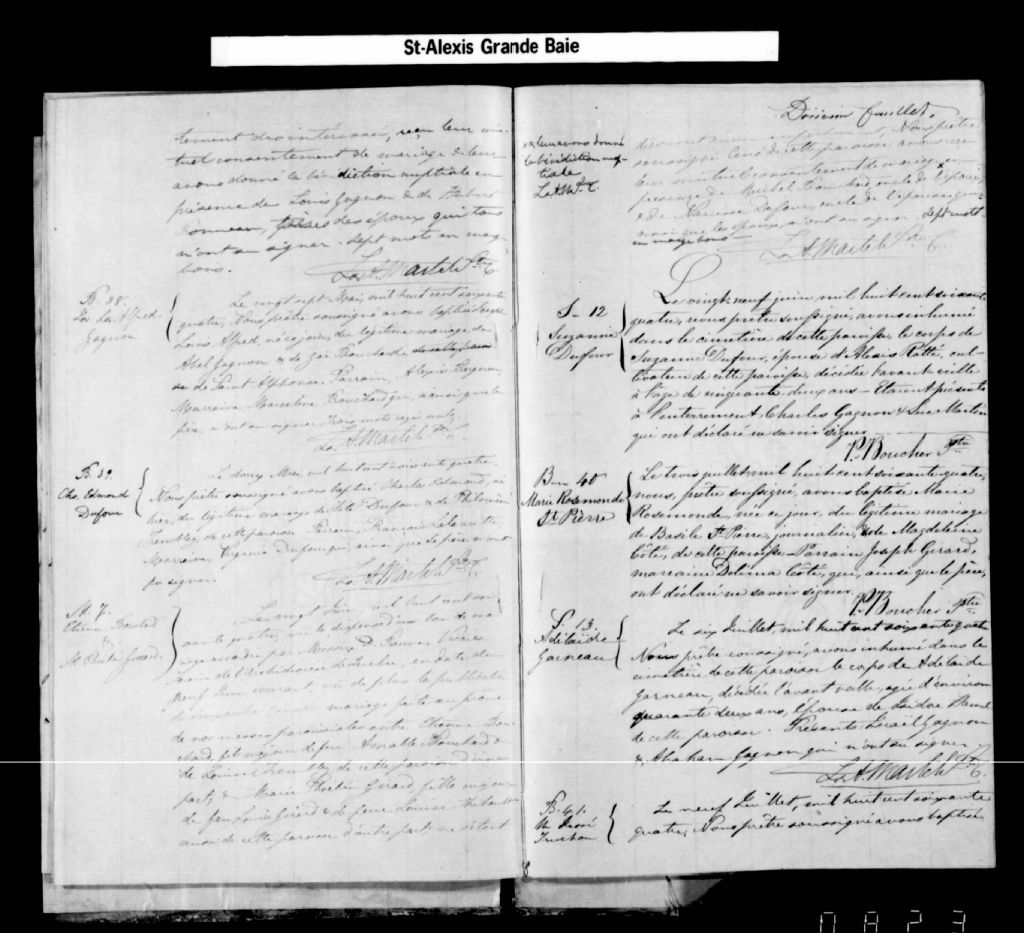 St-Alexis Grande Baie
tement des intéressés, reçu leur mu-
tuel consentement de mariage & leur
avons donné la bénédiction nuptiale en
présence de Louis Gagnon & de
pères des époux qui tous
n'ont su signer. Sept mots en marg
bons.
Ls. A. Martel Ptre
B. 38.
Alfred
Gagnon
Le vingt sept Mai, mil huit cent soixante
quatre, Nous prêtre soussigné avons baptisé
Louis Alfred, né ce jour, du légitime mariage de
Abel Gagnon & de Zoé Bouchard,
de Saint Alphonse. Parrain, Alexis Gagnon,
Marraine Marceline Bouchard qui, ainsi que le
père, n'ont su signer. Trois mots rayés nuls.
Ls. A. Martel Ptre
B. 39.
Chs. Edmond
Dufour
Le douze Mai, mil huit cent soixante quatre,
Nous prêtre soussigné avons baptisé Charles Edmond, né
hier, du légitime mariage de Dufour & de Philomène
Tremblay, de cette paroisse. Parrain, François
Marraine, Virginie Dufour qui, ainsi que le père n'ont
pu signer.
Ls. A. Martel Ptre
M. 7.
Etienne Bouchard
&
M. Girard.
Le vingt Juin, mil huit cent soi-
xante quatre, vu la dispense d'un ban de ma-
riage accordée par
de l'archidiocèse de Québec, en date du
neuf Juin courant, vu de plus la publication
de deux bans de mariage faite au prône
de nos messes paroissiales entre Etienne Bou-
chard, fils majeur de feu Amable Bouchard &
de Louise Tremblay, de cette paroisse d'une
part, & Marie Girard, fille majeure
de feu Louis Girard & de feue Louise
aussi de cette paroisse d'autre part; ne s'étant
Dixième feuillet.
& leur avons donné
la bénédiction nup-
tiale
L. A. M. Ptre
découvert aucun empêchement, Nous prêtre
soussigné Curé de cette paroisse avons reçu
leur mutuel consentement de mariage en
présence de Michel Bouchard, oncle de l'époux,
& de Narcisse Dufour, oncle de l'épouse qui
ainsi que les époux, n'ont su signer. Sept mots
en marge bons
Ls. A. Martel Ptre C.
S- 12
Suzanne
Dufour
Le vingt-neuf juin mil huit cent soixante
quatre, nous prêtre soussigné, avons inhumé
dans le cimetière de cette paroisse, le corps de
Suzanne Dufour, épouse d'Alexis Ratté, cul-
tivateur de cette paroisse, décédée l'avant veille
à l'âge de cinquante-deux ans - Etaient présents
à l'enterrement, Charles Gagnon & Luc Martin
qui ont déclaré ne savoir signer
P. Boucher Ptre
B— 40
Marie Rosemonde
St Pierre
Le trois juillet mil huit cent soixante quatre,
nous, prêtre soussigné, avons baptisé Marie
Rosemonde, née ce jour, du légitime mariage
de Basile St Pierre, journalier, & de Magdeleine
Côté, de cette paroisse - Parrain Joseph Girard,
marraine Delima Côté, qui, ainsi que le père,
ont déclaré ne savoir signer.
P. Boucher Ptre
S. 13.
Adélaïde
Garneau
Le six Juillet, mil huit cent soixante quatre
Nous prêtre soussigné, avons inhumé dans le
cimetière de cette paroisse le corps de Adélaïde
Garneau, décédée l'avant veille, agée d'environ
quarante deux ans, épouse de
de cette paroisse. Présents Israël Gagnon
& Abraham Gagnon qui n'ont su signer
Ls. A. Martel Ptre C.
B. 41.
Truchon
Le neuf Juillet, mil huit cent soixante
quatre, Nous prêtre soussigné avons baptisé
0823